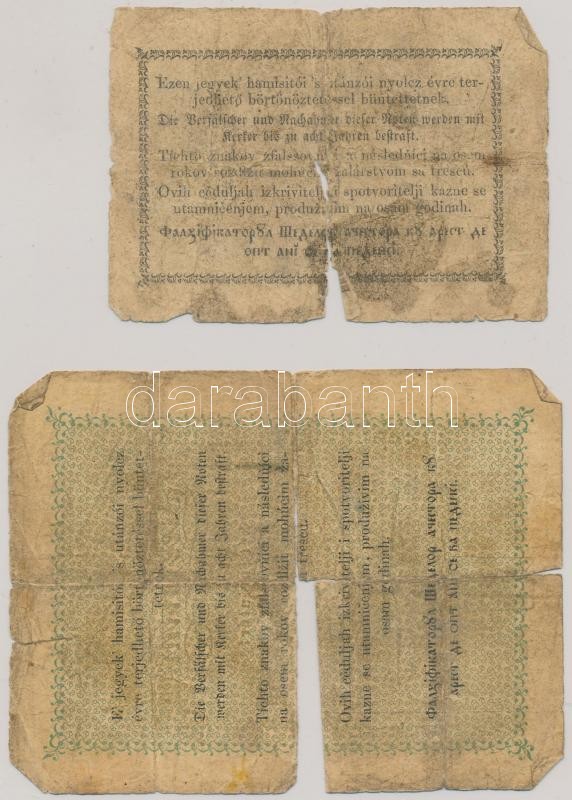 Ezen jegyek' hamisitói 's utánzói nyolcz évre ter-
jedhető börtönöztetéssel büntettetnek.
Die Verfälscher und Nachahmer dieser Noten werden mit
Kerker bis zu acht Jahren bestraft.
Tíchto znakov zfalssovníci a následníci na osem
rokov rozdlžit mohúcim žalárstvom sa trescú.
Ovih céduljah izkrivitelji i spotvoritelji kazne se
utamničenjem, produživim na osam godinah.
Фалʒіфікаторꙋл Шеделор ачестора кꙋ арест де
опт ані се ва педепсі.
darabanth
E' jegyek' hamisitói 's utánzói nyolcz
évre terjedhető börtönöztetéssel büntet-
tetnek.
Die Verfälscher und Nachahmer dieser Noten
werden mit Kerker bis zu acht Jahren bestraft
Tíchto znakov zfalssovníci a následníci
na osem rokov rozdlžit mohúcim ža-
trescú.
Ovih céduljah izkrivitelji i spotvoritelji
kazne se utamničenjem, produživim na
osam godinah.
Фалʒіфікаторꙋл Шеделор ачестора кꙋ
арест де опт ані се ва педепсі.